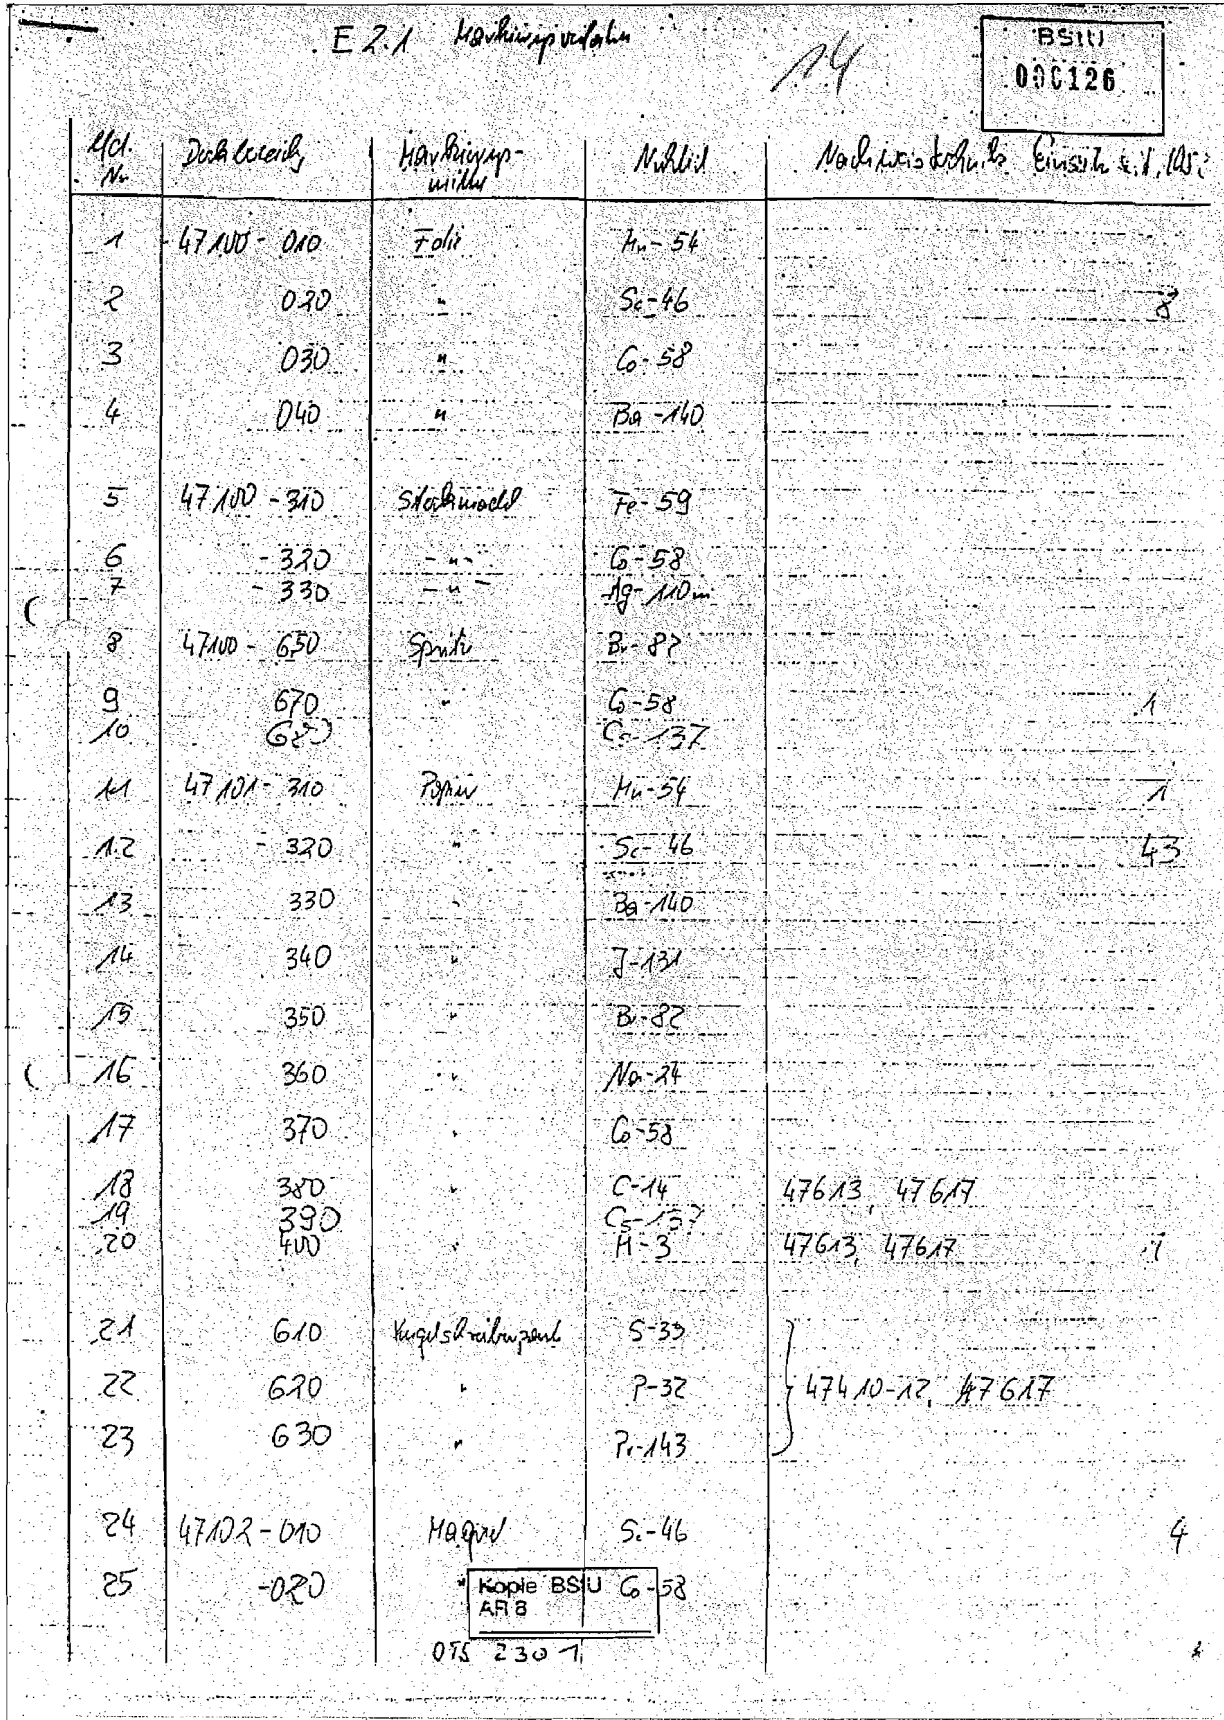 E 2.1 Markierungsverfahren
14
BStU
000126
lfd. Nr. Deckbereich Markierungsmittel Nuklid Nachweistechnik Einsatz
1 47100 - 010 Folie Mn-54
2 020 " Sc-46 8
3 030 " Co-58
4 040 " Ba-140
5 47100 - 310 Stecknadel Fe-59
6 - 320 - " - Co-58
7 - 330 - " - Ag-110m
8 47100 - 650 Spritze Br-82
9 670 " Co-58 1
10 680 Cs-137
11 47101 - 310 Papier Mn-54 1
12 - 320 " Sc-46 43
13 330 " Ba-140
14 340 " J-131
15 350 " Br-82
16 360 " Na-24
17 370 " Co-58
18 380 " C-14 47613, 47617
19 390 Cs-137
20 400 " H-3 47613, 47617 1
21 610 Kugelschreiberpaste S-35
22 620 " P-32 47410-12, 47617
23 630 " Pr-143
24 47102 - 010 Magnet Sc-46 4
25 - 020 " Co-58
Kopie BStU
AR 8